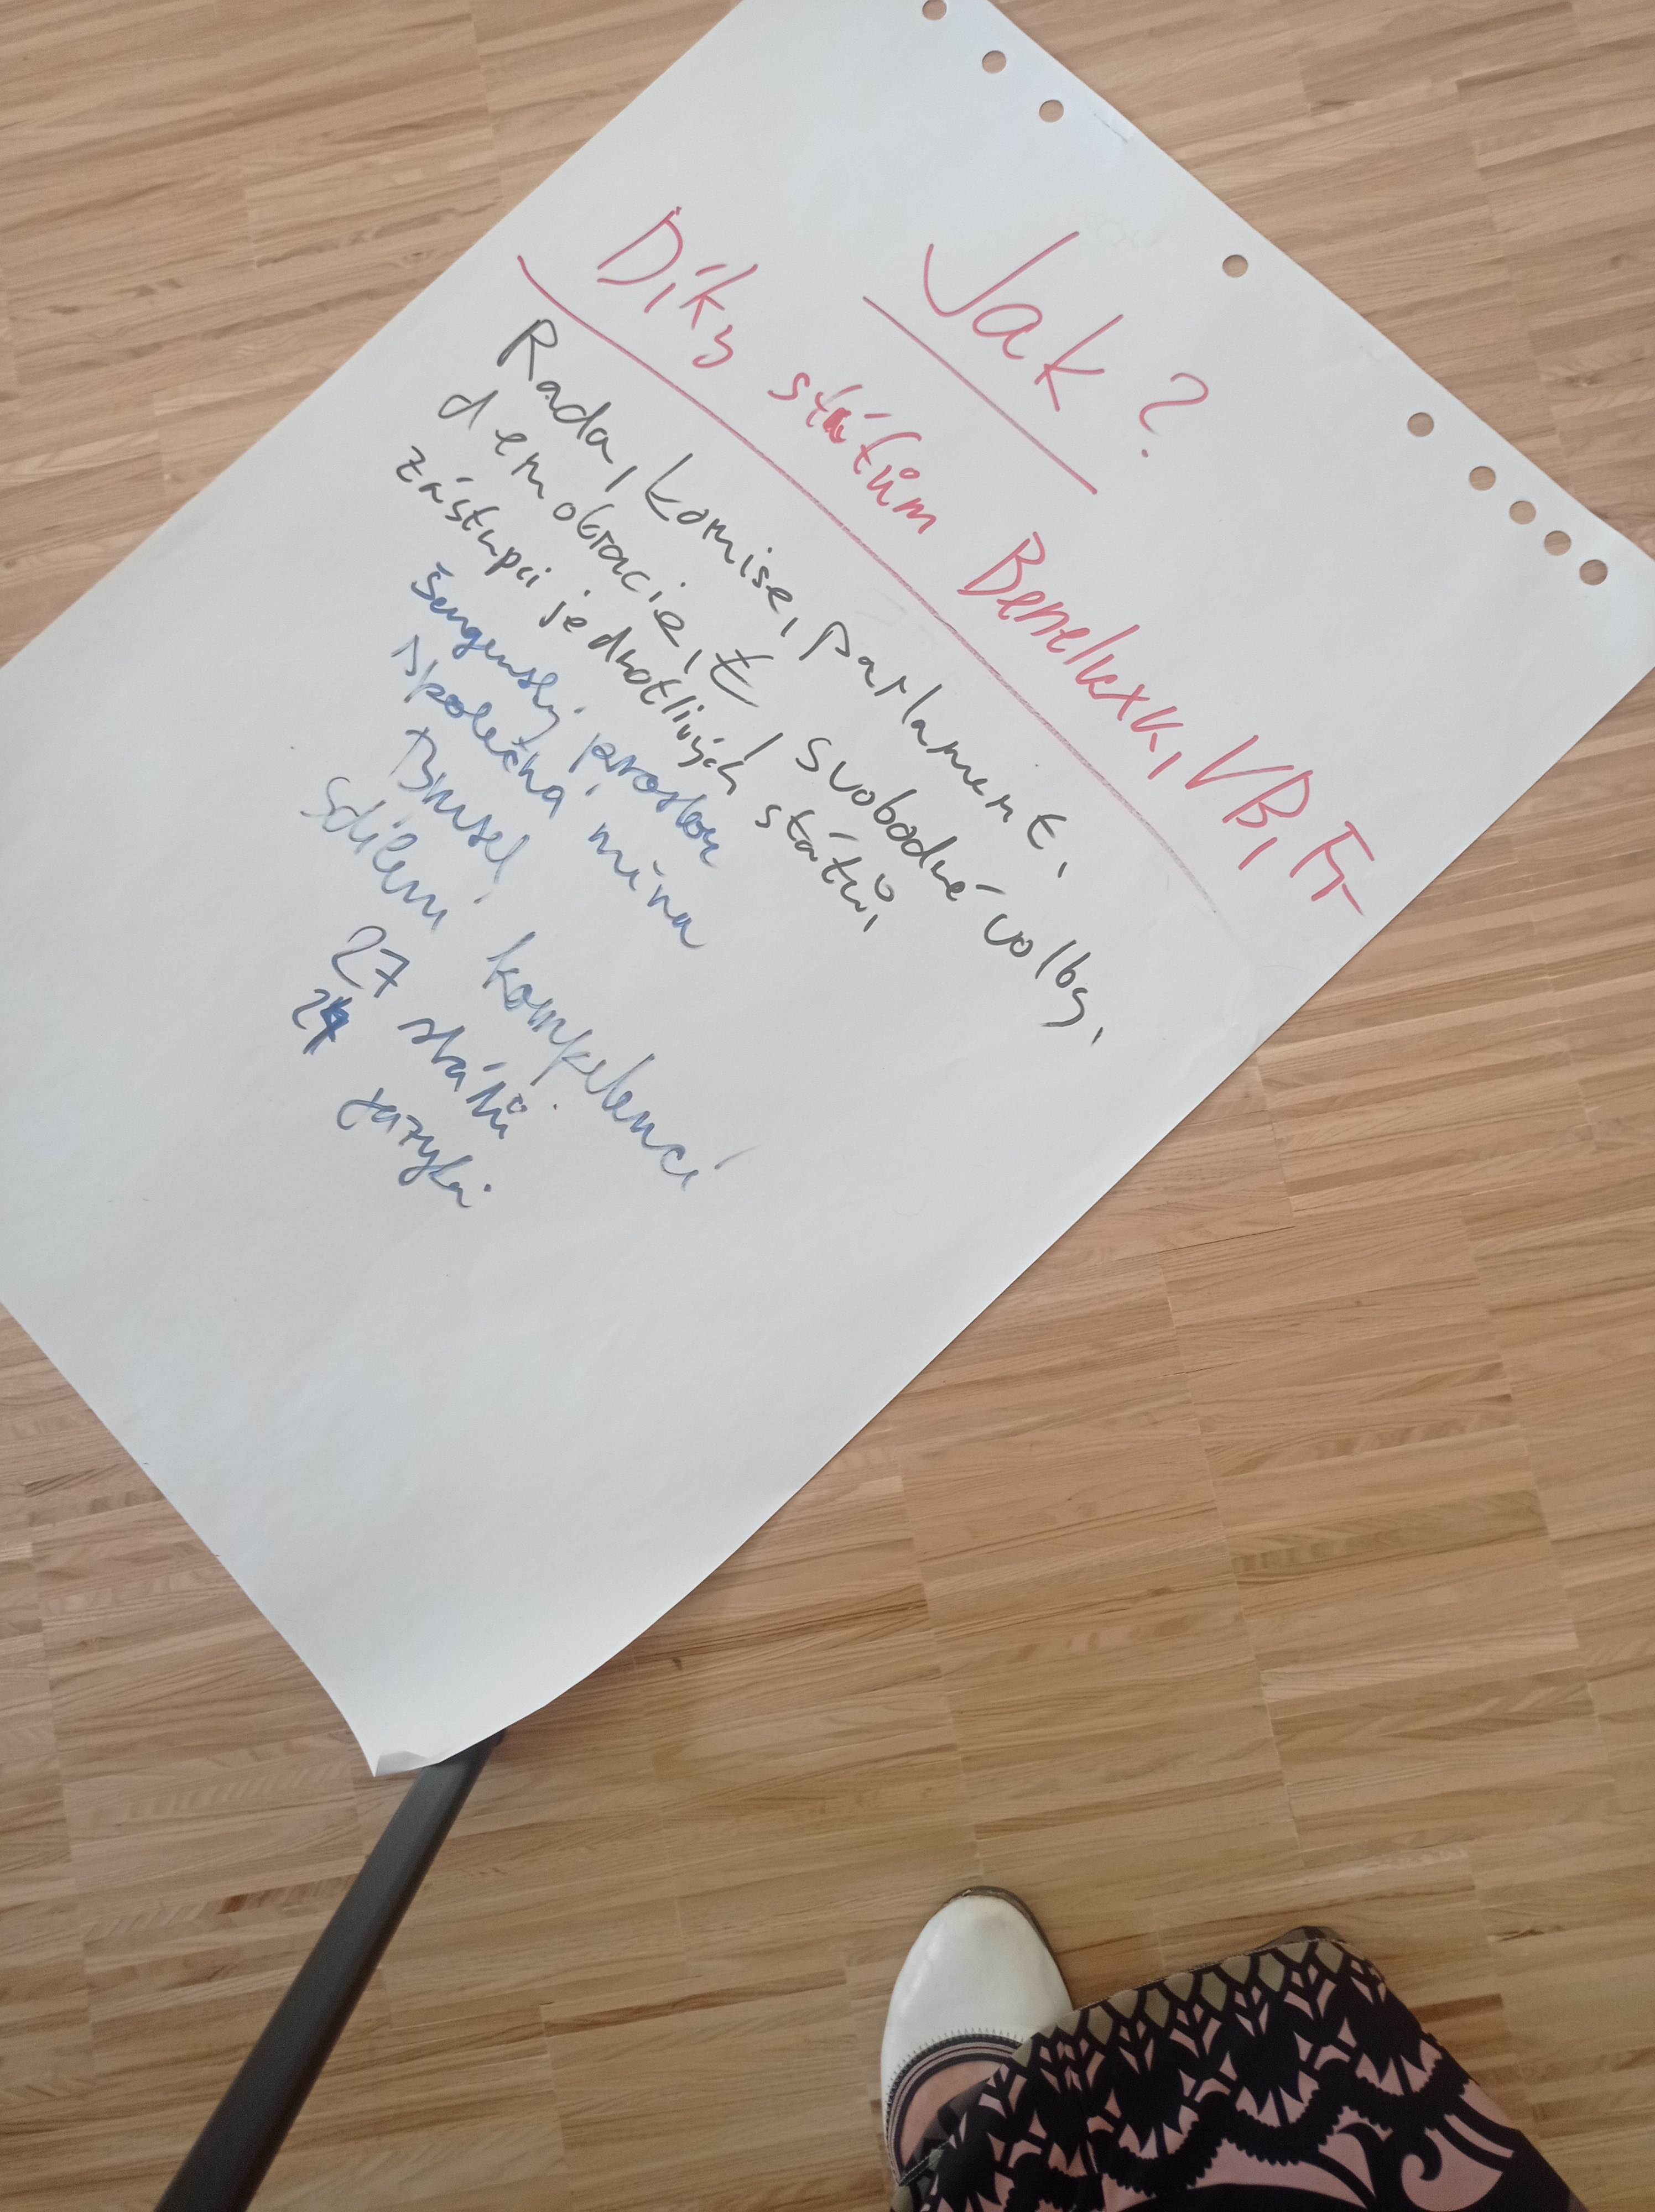 Jak?
Díky státům Beneluxu, VB, Fr
Rada, komise, parlament,
demokracie, €, svobodné volby,
zástupci jednotlivých států,
Šengenský prostor
společná měna
Brusel
Sdílení kompetencí
27 států
24 jazyků